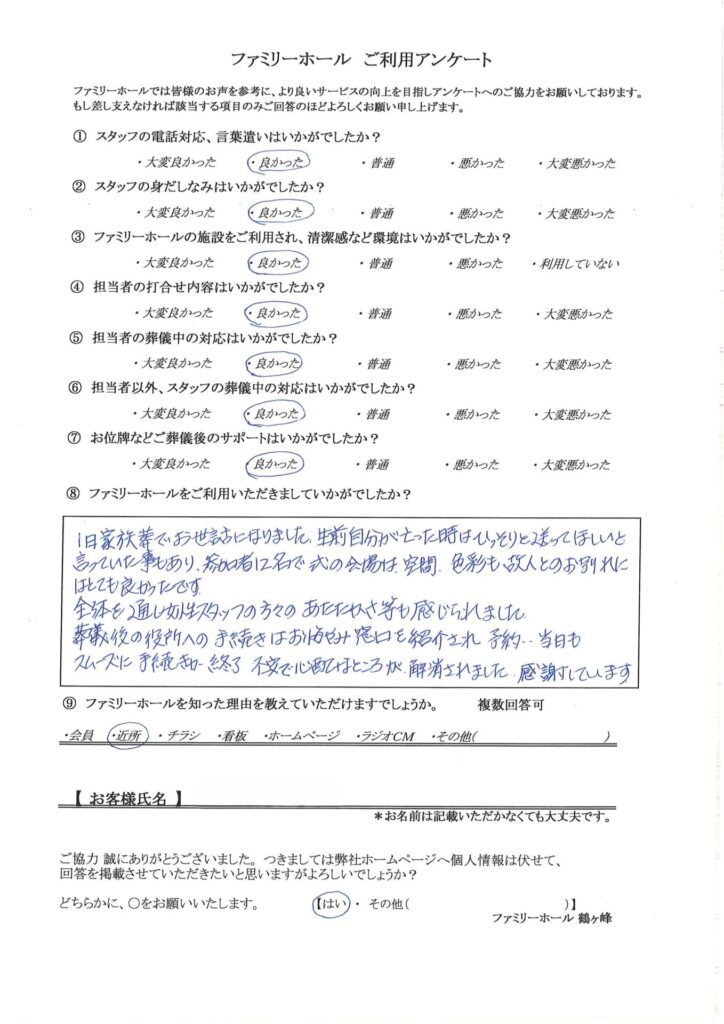 ファミリーホール ご利用アンケート
ファミリーホールでは皆様のお声を参考に、より良いサービスの向上を目指しアンケートへのご協力をお願いしております。
もし差し支えなければ該当する項目のみご回答のほどよろしくお願い申し上げます。
① スタッフの電話対応、言葉遣いはいかがでしたか？
・大変良かった ・良かった ・普通 ・悪かった ・大変悪かった
② スタッフの身だしなみはいかがでしたか？
・大変良かった ・良かった ・普通 ・悪かった ・大変悪かった
③ ファミリーホールの施設をご利用され、清潔感など環境はいかがでしたか？
・大変良かった ・良かった ・普通 ・悪かった ・利用していない
④ 担当者の打合せ内容はいかがでしたか？
・大変良かった ・良かった ・普通 ・悪かった ・大変悪かった
⑤ 担当者の葬儀中の対応はいかがでしたか？
・大変良かった ・良かった ・普通 ・悪かった ・大変悪かった
⑥ 担当者以外、スタッフの葬儀中の対応はいかがでしたか？
・大変良かった ・良かった ・普通 ・悪かった ・大変悪かった
⑦ お位牌などご葬儀後のサポートはいかがでしたか？
・大変良かった ・良かった ・普通 ・悪かった ・大変悪かった
⑧ ファミリーホールをご利用いただきましていかがでしたか？
1日家族葬でお世話になりました。生前自分が亡った時はひっそりと送ってほしいと
言っていた事もあり、参加者12名で式の会場は、空間、色彩も、故人とのお別れに
はとても良かったです。
全体を通し女性スタッフの方々のあたたかさ等も感じられました。
葬儀後の役所への手続きはお悔やみ窓口を紹介され予約‥当日も
スムーズに手続きが終了 不安で心配なところが、解消されました。感謝しています
⑨ ファミリーホールを知った理由を教えていただけますでしょうか。 複数回答可
・会員 ・近所 ・チラシ ・看板 ・ホームページ ・ラジオCM ・その他( )
【 お客様氏名 】
＊お名前は記載いただかなくても大丈夫です。
ご協力 誠にありがとうございました。つきましては弊社ホームページへ個人情報は伏せて、
回答を掲載させていただきたいと思いますがよろしいでしょうか？
どちらかに、○をお願いいたします。 【はい ・ その他( )】
ファミリーホール 鶴ヶ峰